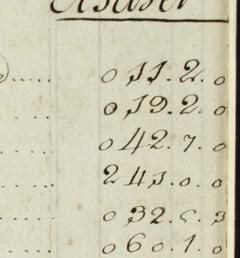 0 11. 2. 0
0 19. 2. 0
0 42. 7. 0
2 41. 0. 0
0 32. 5. 3
0 60. 1. 0